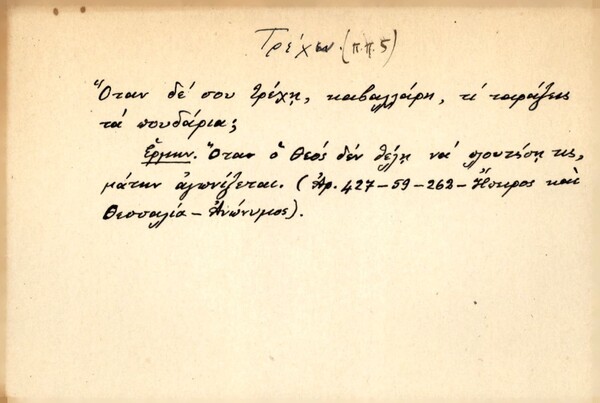 Τρέχειν. (π.π. 5)
Ὅταν δέ σου τρέχῃ, καβαλλάρη, τί ταράζεις
τά πουδάρια;
Ἑρμην. Ὅταν ὁ Θεός δέν θέλῃ νά πλουτήσῃ τις,
μάτην ἀγωνίζεται. (Ἀρ. 427-59-262-Ἤπειρος καὶ
Θεσσαλία - Ἀνώνυμος).